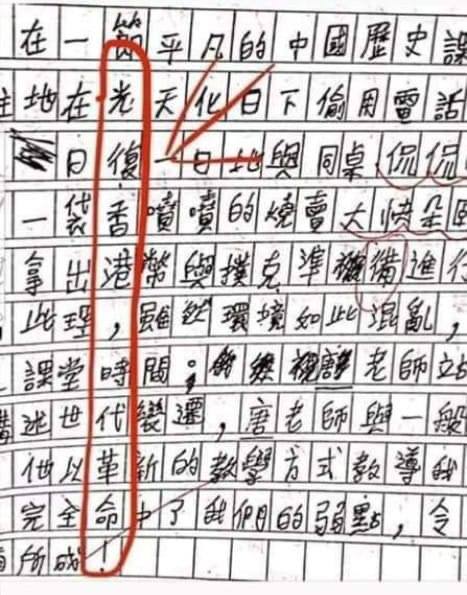 在一節平凡的中國歷史課
地在光天化日下偷用電話
日復一日地與同桌侃侃
一袋香噴噴的燒賣大快朵
拿出港幣與撲克準備進行
此理,雖然環境如此混亂,
課堂時間。 老師站
述世代變遷,唐老師與一般
他以革新的教學方式教導我
完全命中了我們的弱點,令
所成!